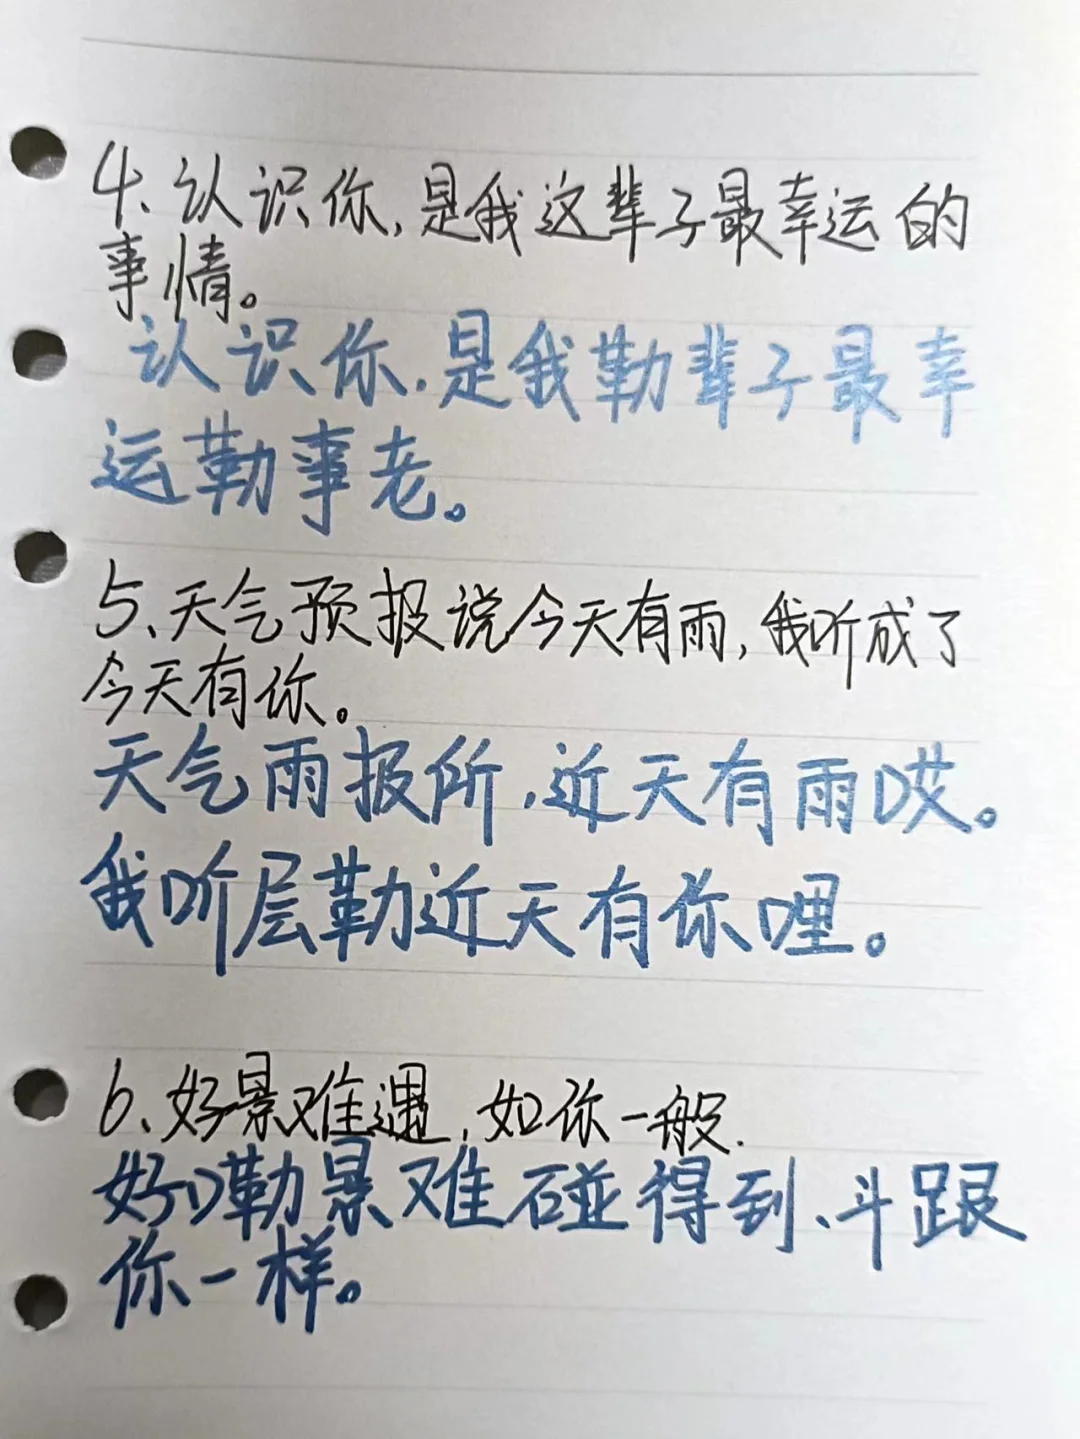 4、认识你,是我这辈子最幸运的
事情。
认识你,是我勒辈子最幸
运勒事老。
5、天气预报说今天有雨,我听成了
今天有你。
天气雨报所,近天有雨哎。
我听层勒近天有你哩。
6、好景难遇,如你一般.
好嘞景难碰得到、斗跟
你一样。